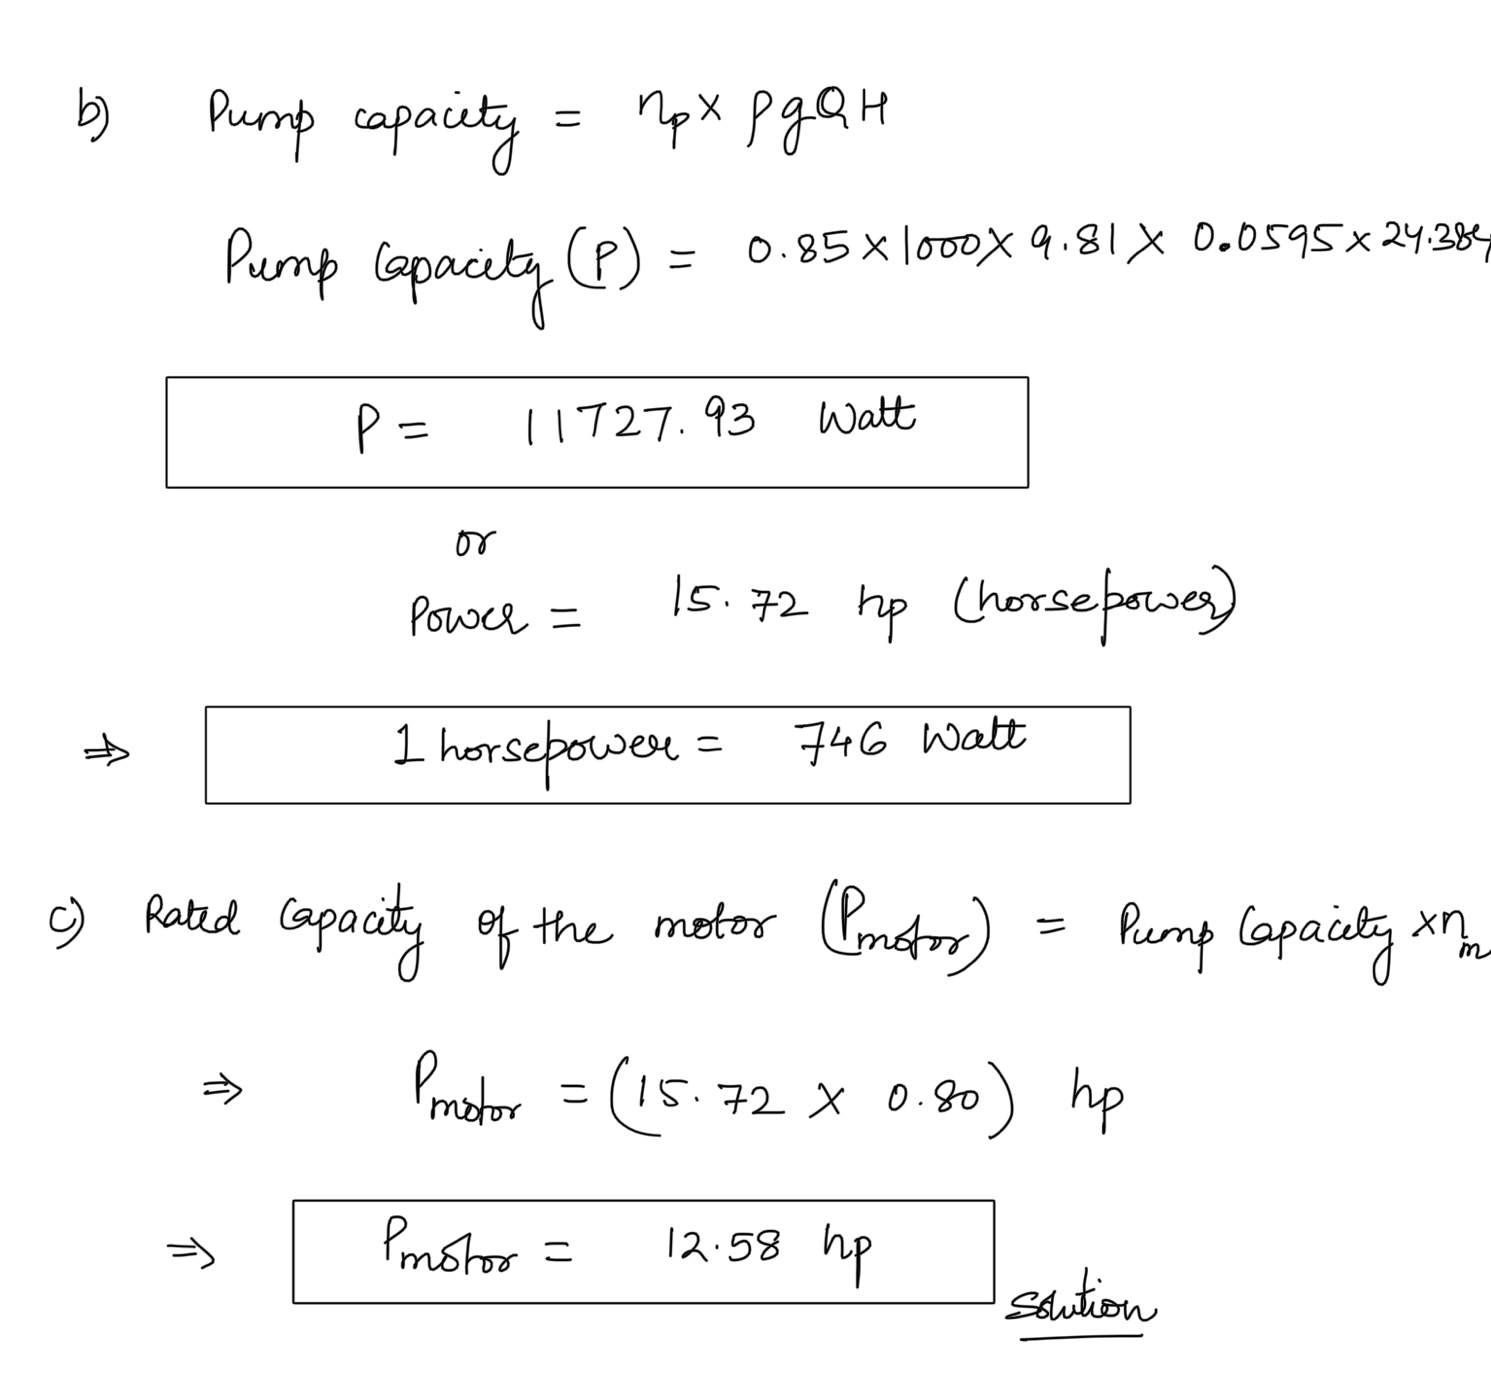 b) Pump capacity = ηp × ρgQH
Pump Capacity (P) = 0.85 × 1000 × 9.81 × 0.0595 × 24.384
P = 11727.93 Watt
or
Power = 15.72 hp (horsepower)
⇒ 1 horsepower = 746 Watt
c) Rated Capacity of the motor (Pmotor) = Pump Capacity × ηm
⇒ Pmotor = (15.72 × 0.80) hp
⇒ Pmotor = 12.58 hp
Solution